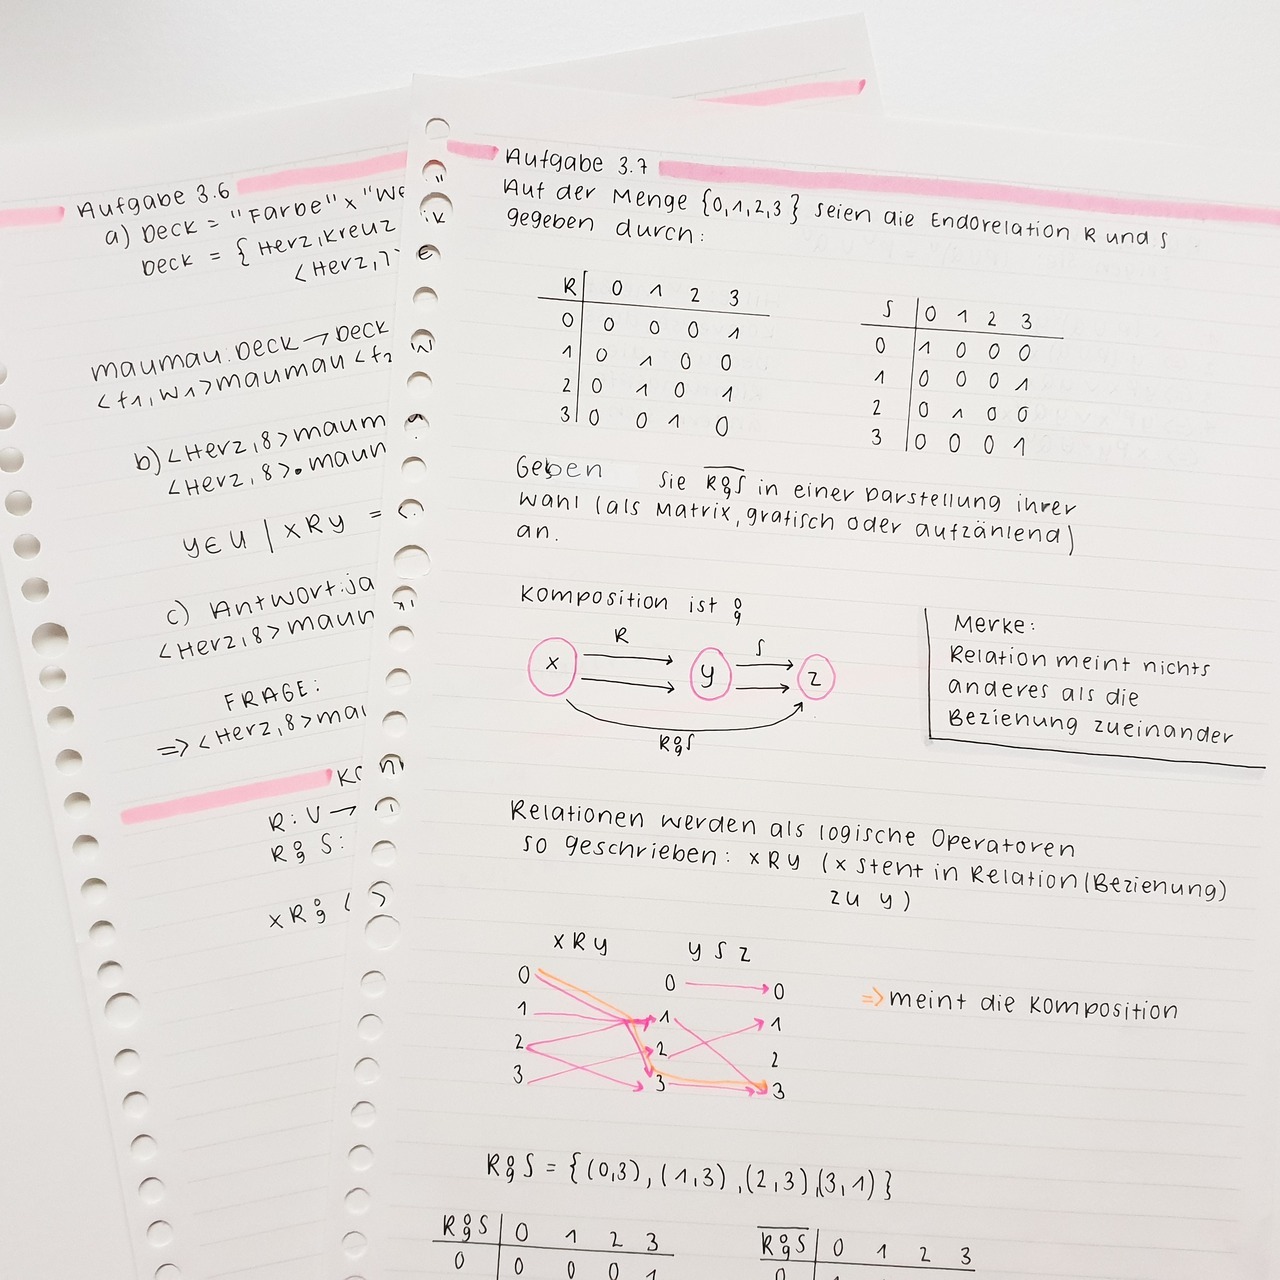 Aufgabe 3.6
a) Deck = "Farbe" x "We
Deck = { Herz, Kreuz
<Herz, 7>
maumau: Deck → Deck
<f1, w1> maumau <f2
b) <Herz, 8> maum
<Herz, 8> . maun
y ∈ U | x R y = <
c) Antwort: ja
<Herz, 8> maun
FRAGE:
=> <Herz, 8> mau
R: V →
R ⨾ S:
x R ⨾ ( S
Aufgabe 3.7
Auf der Menge {0,1,2,3} seien die Endorelation R und S
gegeben durch:
R | 0 1 2 3
0 | 0 0 0 1
1 | 0 1 0 0
2 | 0 1 0 1
3 | 0 0 1 0
S | 0 1 2 3
0 | 1 0 0 0
1 | 0 0 0 1
2 | 0 1 0 0
3 | 0 0 0 1
Geben sie R̅⨾̅S̅ in einer Darstellung ihrer
Wahl (als Matrix, grafisch oder aufzählend)
an.
Komposition ist ⨾
R S
x y z
R⨾S
Merke:
Relation meint nichts
anderes als die
Beziehung zueinander
Relationen werden als logische Operatoren
so geschrieben: x R y (x steht in Relation (Beziehung)
zu y)
x R y y S z
0 0 0
1 1 1
2 2 2
3 3 3
=> meint die Komposition
R⨾S = {(0,3), (1,3), (2,3), (3,1)}
R⨾S | 0 1 2 3
0 | 0 0 0 1
R̅⨾̅S̅ | 0 1 2 3